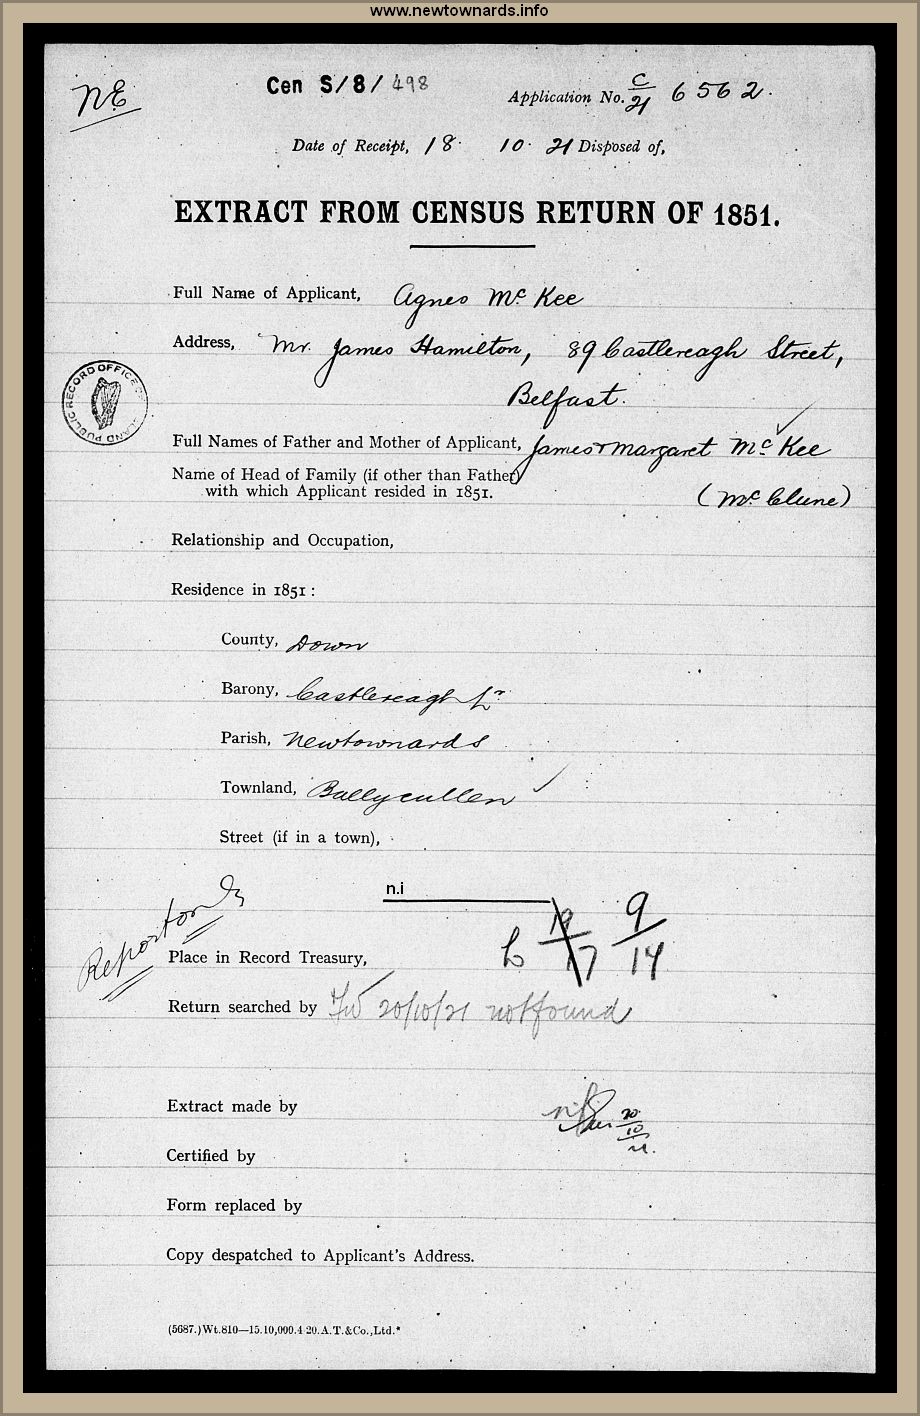 www.newtownards.info
NE
Cen S/8/498
Application No. C/21 6562.
Date of Receipt, 18 · 10 · 21 Disposed of,
EXTRACT FROM CENSUS RETURN OF 1851.
Full Name of Applicant, Agnes Mc Kee
Address, Mr. James Hamilton, 89 Castlereagh Street,
Belfast.
PUBLIC RECORD OFFICE
Full Names of Father and Mother of Applicant, James & Margaret Mc Kee
Name of Head of Family (if other than Father)
with which Applicant resided in 1851.
(Mc Clune)
Relationship and Occupation,
Residence in 1851 :
County, Down
Barony, Castlereagh Lr
Parish, Newtownards
Townland, Ballycullen
Street (if in a town),
n.i
19/17 9/14
Place in Record Treasury,
Return searched by 20/10/21 not found
Extract made by
20/10/21.
Certified by
Form replaced by
Copy despatched to Applicant's Address.
(5687.)Wt.810—15.10,000.4·20.A.T.&Co.,Ltd.*